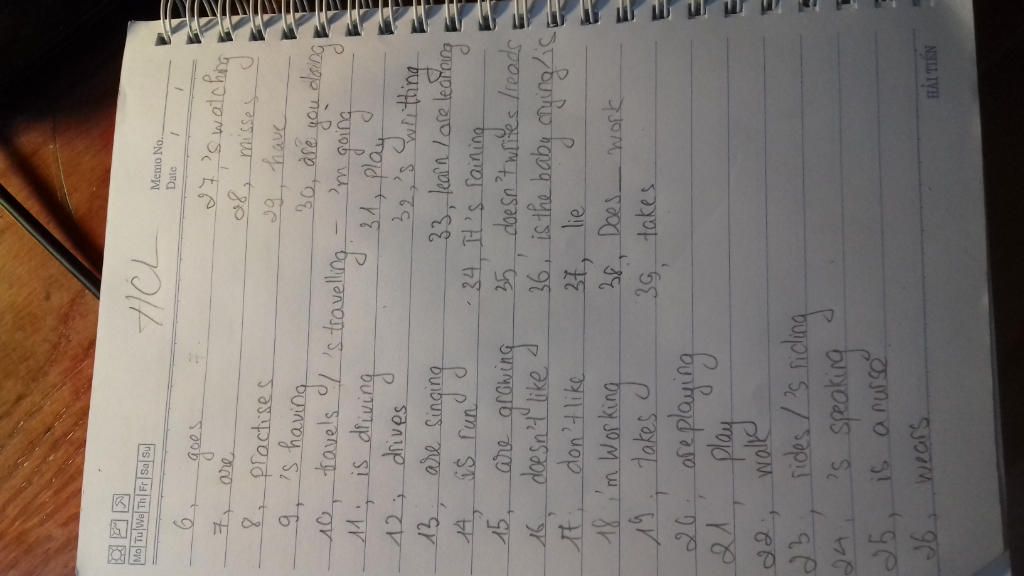 Memo No.
Mo Tu We Th Fr Sa Su
Date / /
6, goes
7, are
8, practises
9, 's having
10, travels / 's travelling - 'm going
11, is driving
12, drives
13, are singing
14, is run
15, are
16, doesn't like
17, don't like
18, 'm working
19, takes
20, are playing
21, play
22, walk
23, rides / 's riding
24, 's speaking
25, is a nurse
26, wears
27, 's watching
28, misses
29, have
30, are you doing
31, play
32, 's writting
33, learn / are learning
34, It's raining
35, doesn't writes / reads
36, is the baby crying / is
37, lie
38, Does — work
39, takes
HẢI TIẾN